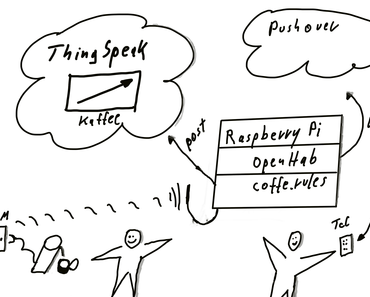 ThingSpeak
Kaffee
Pushover
post
Raspberry Pi
OpenHab
coffe.rules
M
Tel